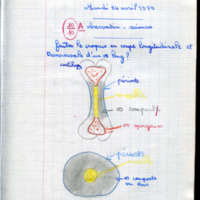 Mardi 24 avril
10/10 A observation - sciences
faites le croquis en coupe longitudinale et
transversale d'un os long ?
cartilage
périoste
moelle
os compact
os spongieux
périoste
moelle
os compacte
ou dur